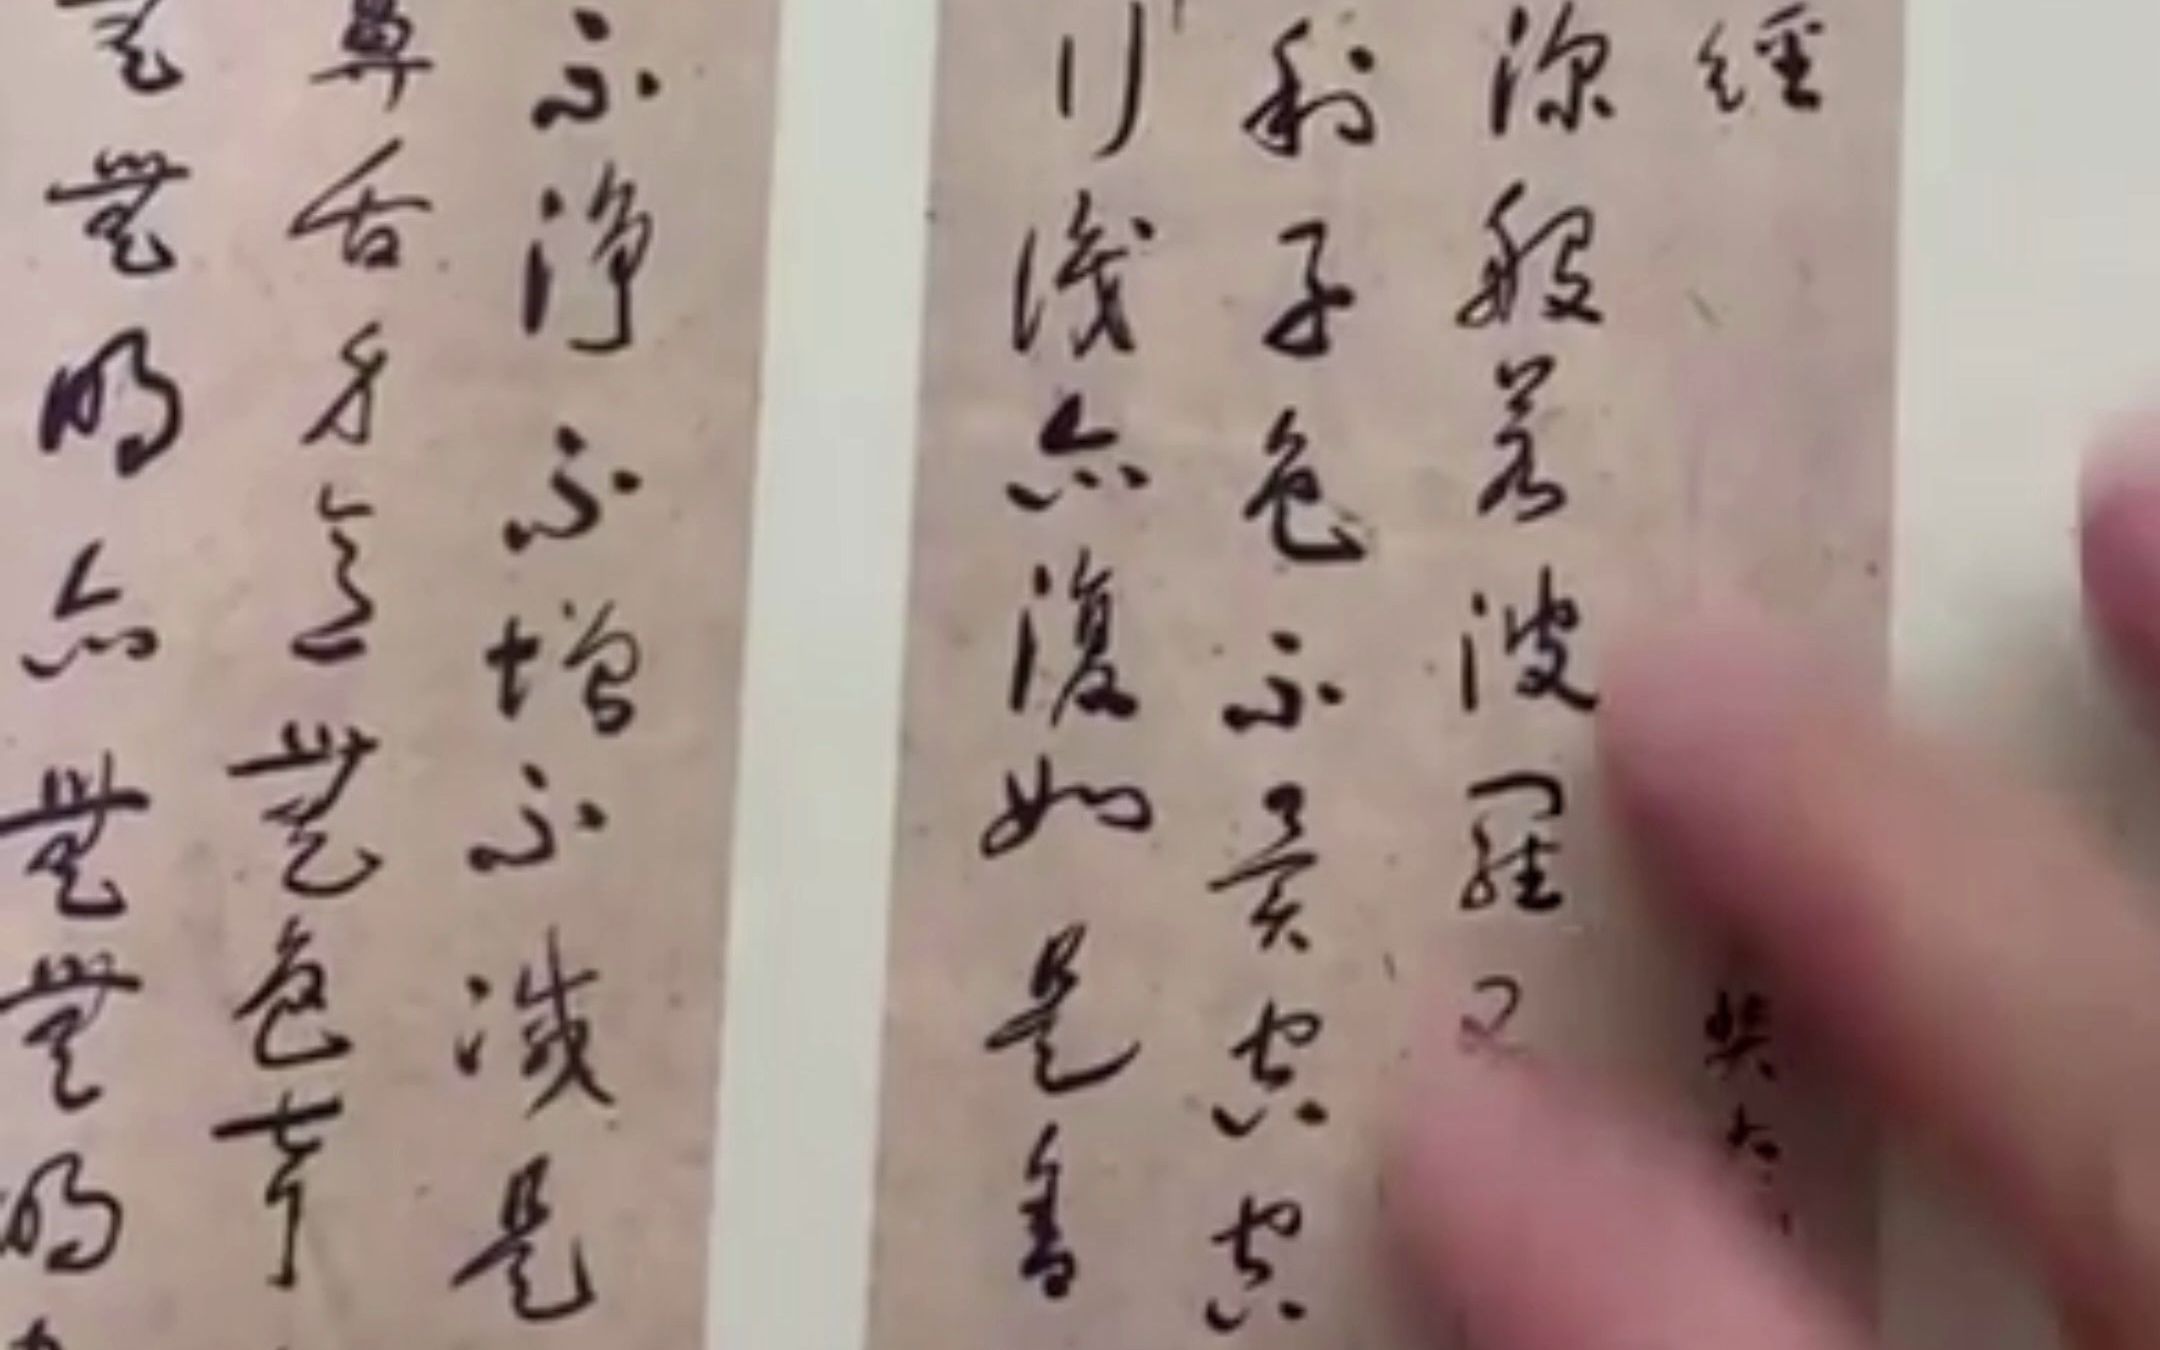 經
深般若波羅
利子色不異空空
行識亦復如是舍
不淨不增不減是
鼻舌身意無色聲
無無明亦無無明